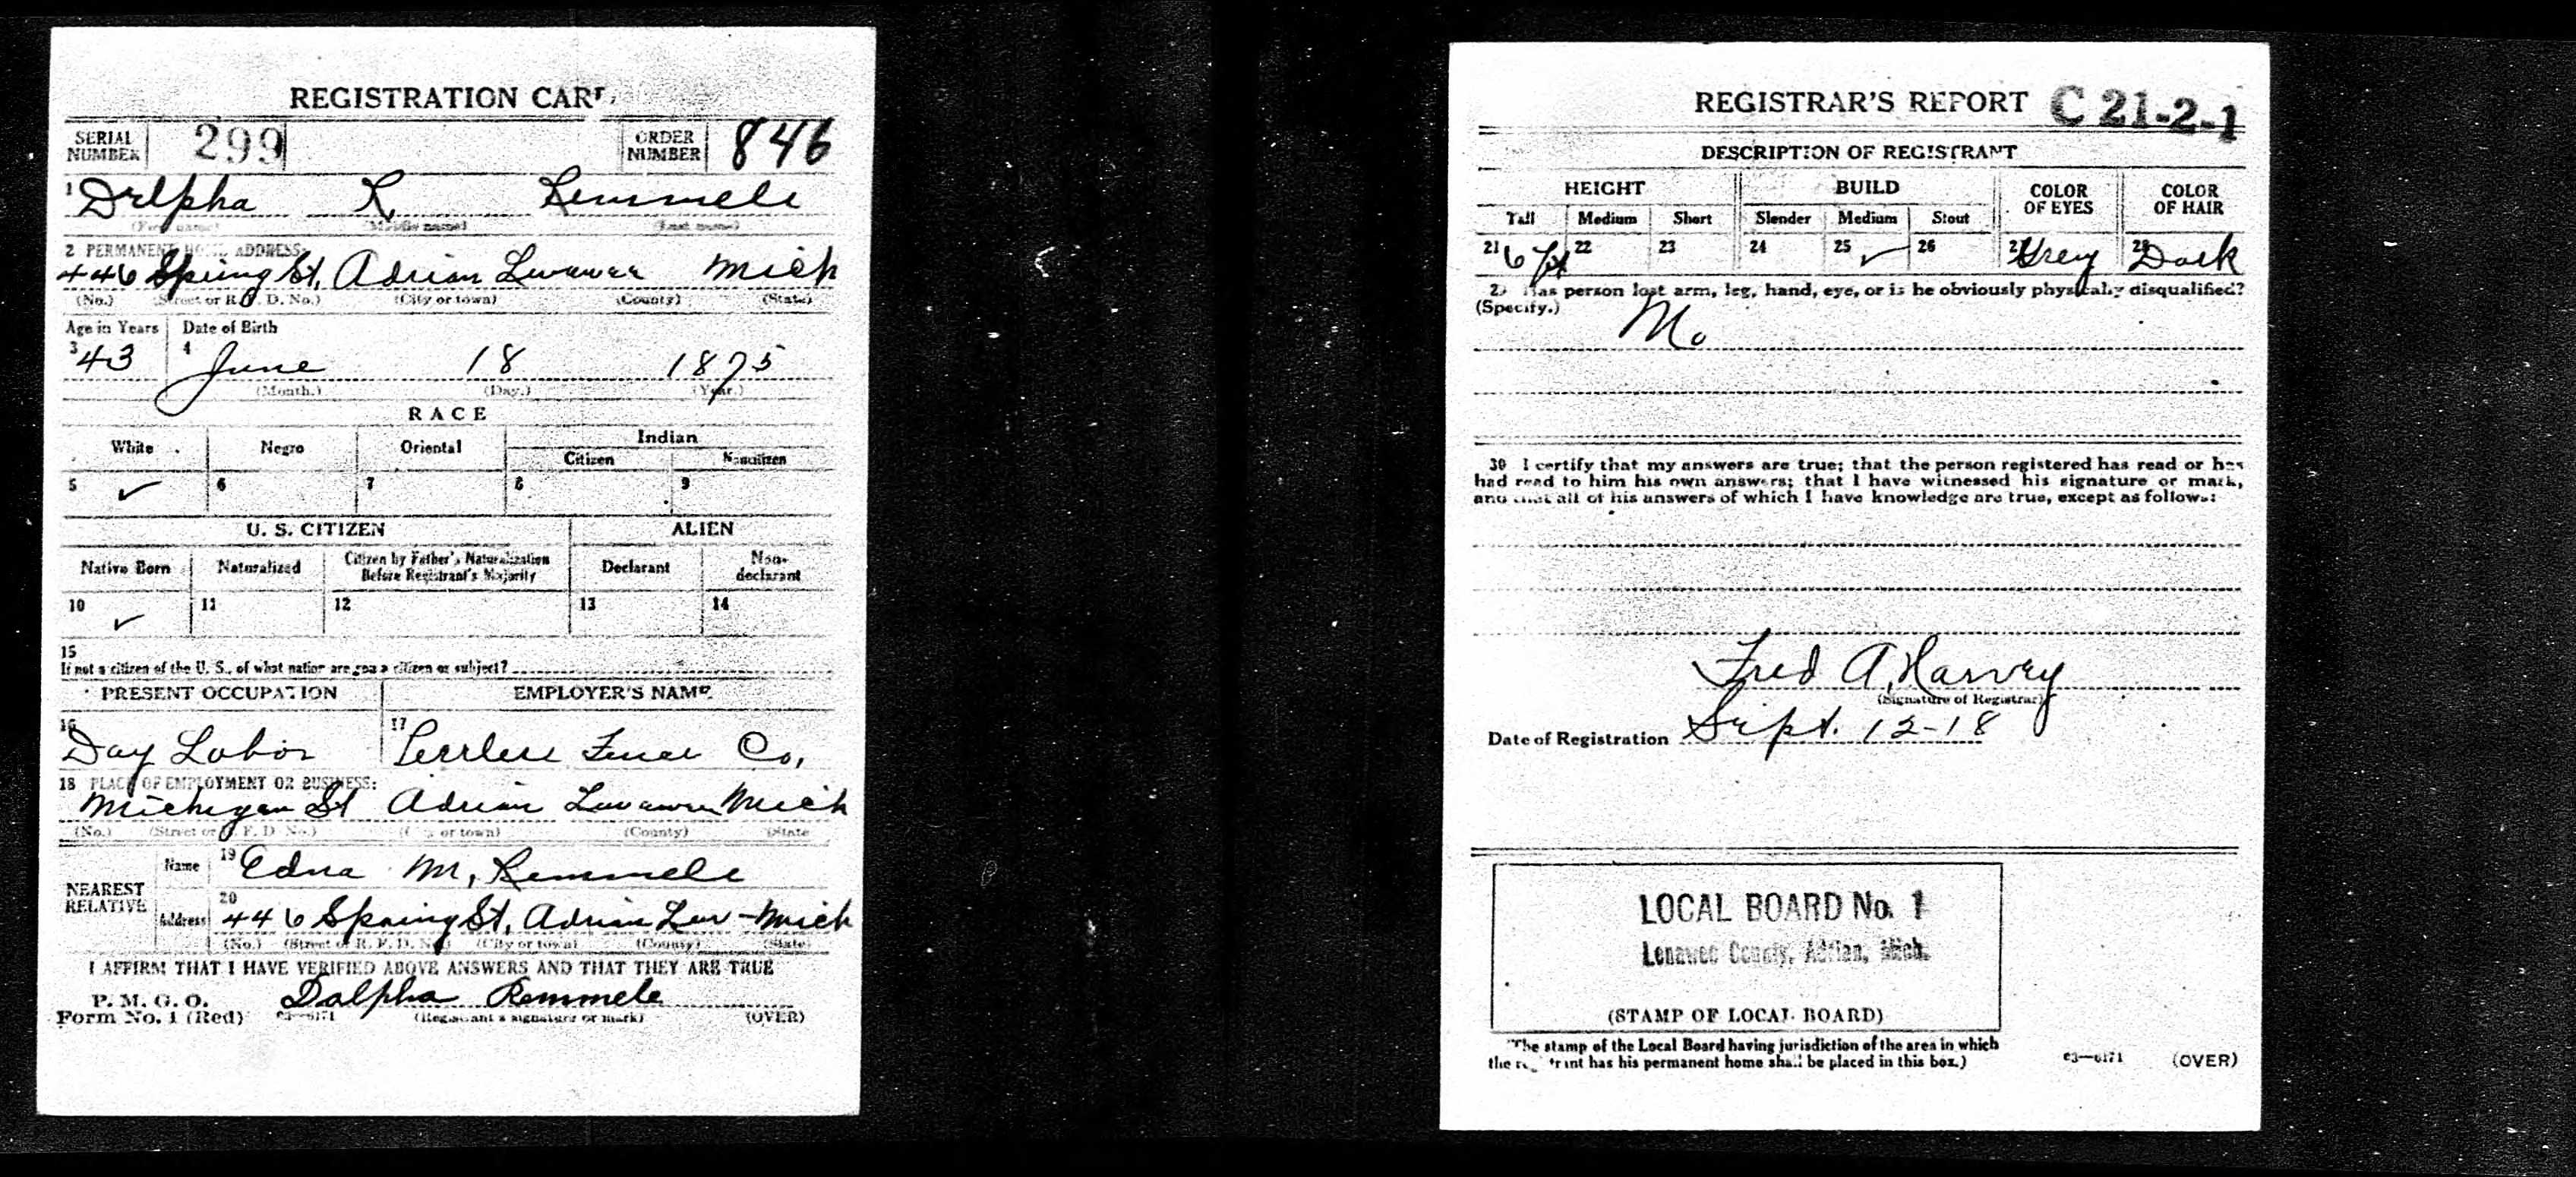 REGISTRATION CARD
SERIAL NUMBER 299 ORDER NUMBER 846
1 Delpha R. Remmele
(First name) (Middle name) (Last name)
2 PERMANENT HOME ADDRESS:
446 Spring St. Adrian Lenawee Mich
(No.) (Street or R. F. D. No.) (City or town) (County) (State)
Age in Years Date of Birth
3 43 4 June 18 1875
(Month.) (Day.) (Year.)
RACE
White Negro Oriental Indian
Citizen Noncitizen
5 ✓ 6 7 8 9
U. S. CITIZEN ALIEN
Native Born Naturalized Citizen by Father's Naturalization Before Registrant's Majority Declarant Non-declarant
10 ✓ 11 12 13 14
15
If not a citizen of the U. S., of what nation are you a citizen or subject?
PRESENT OCCUPATION EMPLOYER'S NAME
16 Day Labor 17 Peerless Fence Co.
18 PLACE OF EMPLOYMENT OR BUSINESS:
Michigan St Adrian Lenawee Mich
(No.) (Street or R. F. D. No.) (City or town) (County) (State)
NEAREST RELATIVE
Name 19 Edna M. Remmele
Address 20 446 Spring St. Adrian Len - Mich
(No.) (Street or R. F. D. No.) (City or town) (County) (State)
I AFFIRM THAT I HAVE VERIFIED ABOVE ANSWERS AND THAT THEY ARE TRUE
P. M. G. O.
Form No. 1 (Red) 03—6171 Dalpha Remmele
(Registrant's signature or mark) (OVER)
REGISTRAR'S REPORT C 21-2-1
DESCRIPTION OF REGISTRANT
HEIGHT BUILD COLOR OF EYES COLOR OF HAIR
Tall Medium Short Slender Medium Stout
21 6 ft 22 23 24 25 ✓ 26 27 Grey 28 Dark
29 Has person lost arm, leg, hand, eye, or is he obviously physically disqualified?
(Specify.) No
30 I certify that my answers are true; that the person registered has read or has
had read to him his own answers; that I have witnessed his signature or mark,
and that all of his answers of which I have knowledge are true, except as follows:
Fred A. Harvey
(Signature of Registrar)
Date of Registration Sept. 12-18
LOCAL BOARD No. 1
Lenawee County, Adrian, Mich.
(STAMP OF LOCAL BOARD)
(The stamp of the Local Board having jurisdiction of the area in which
the registrant has his permanent home shall be placed in this box.)
03—6171 (OVER)